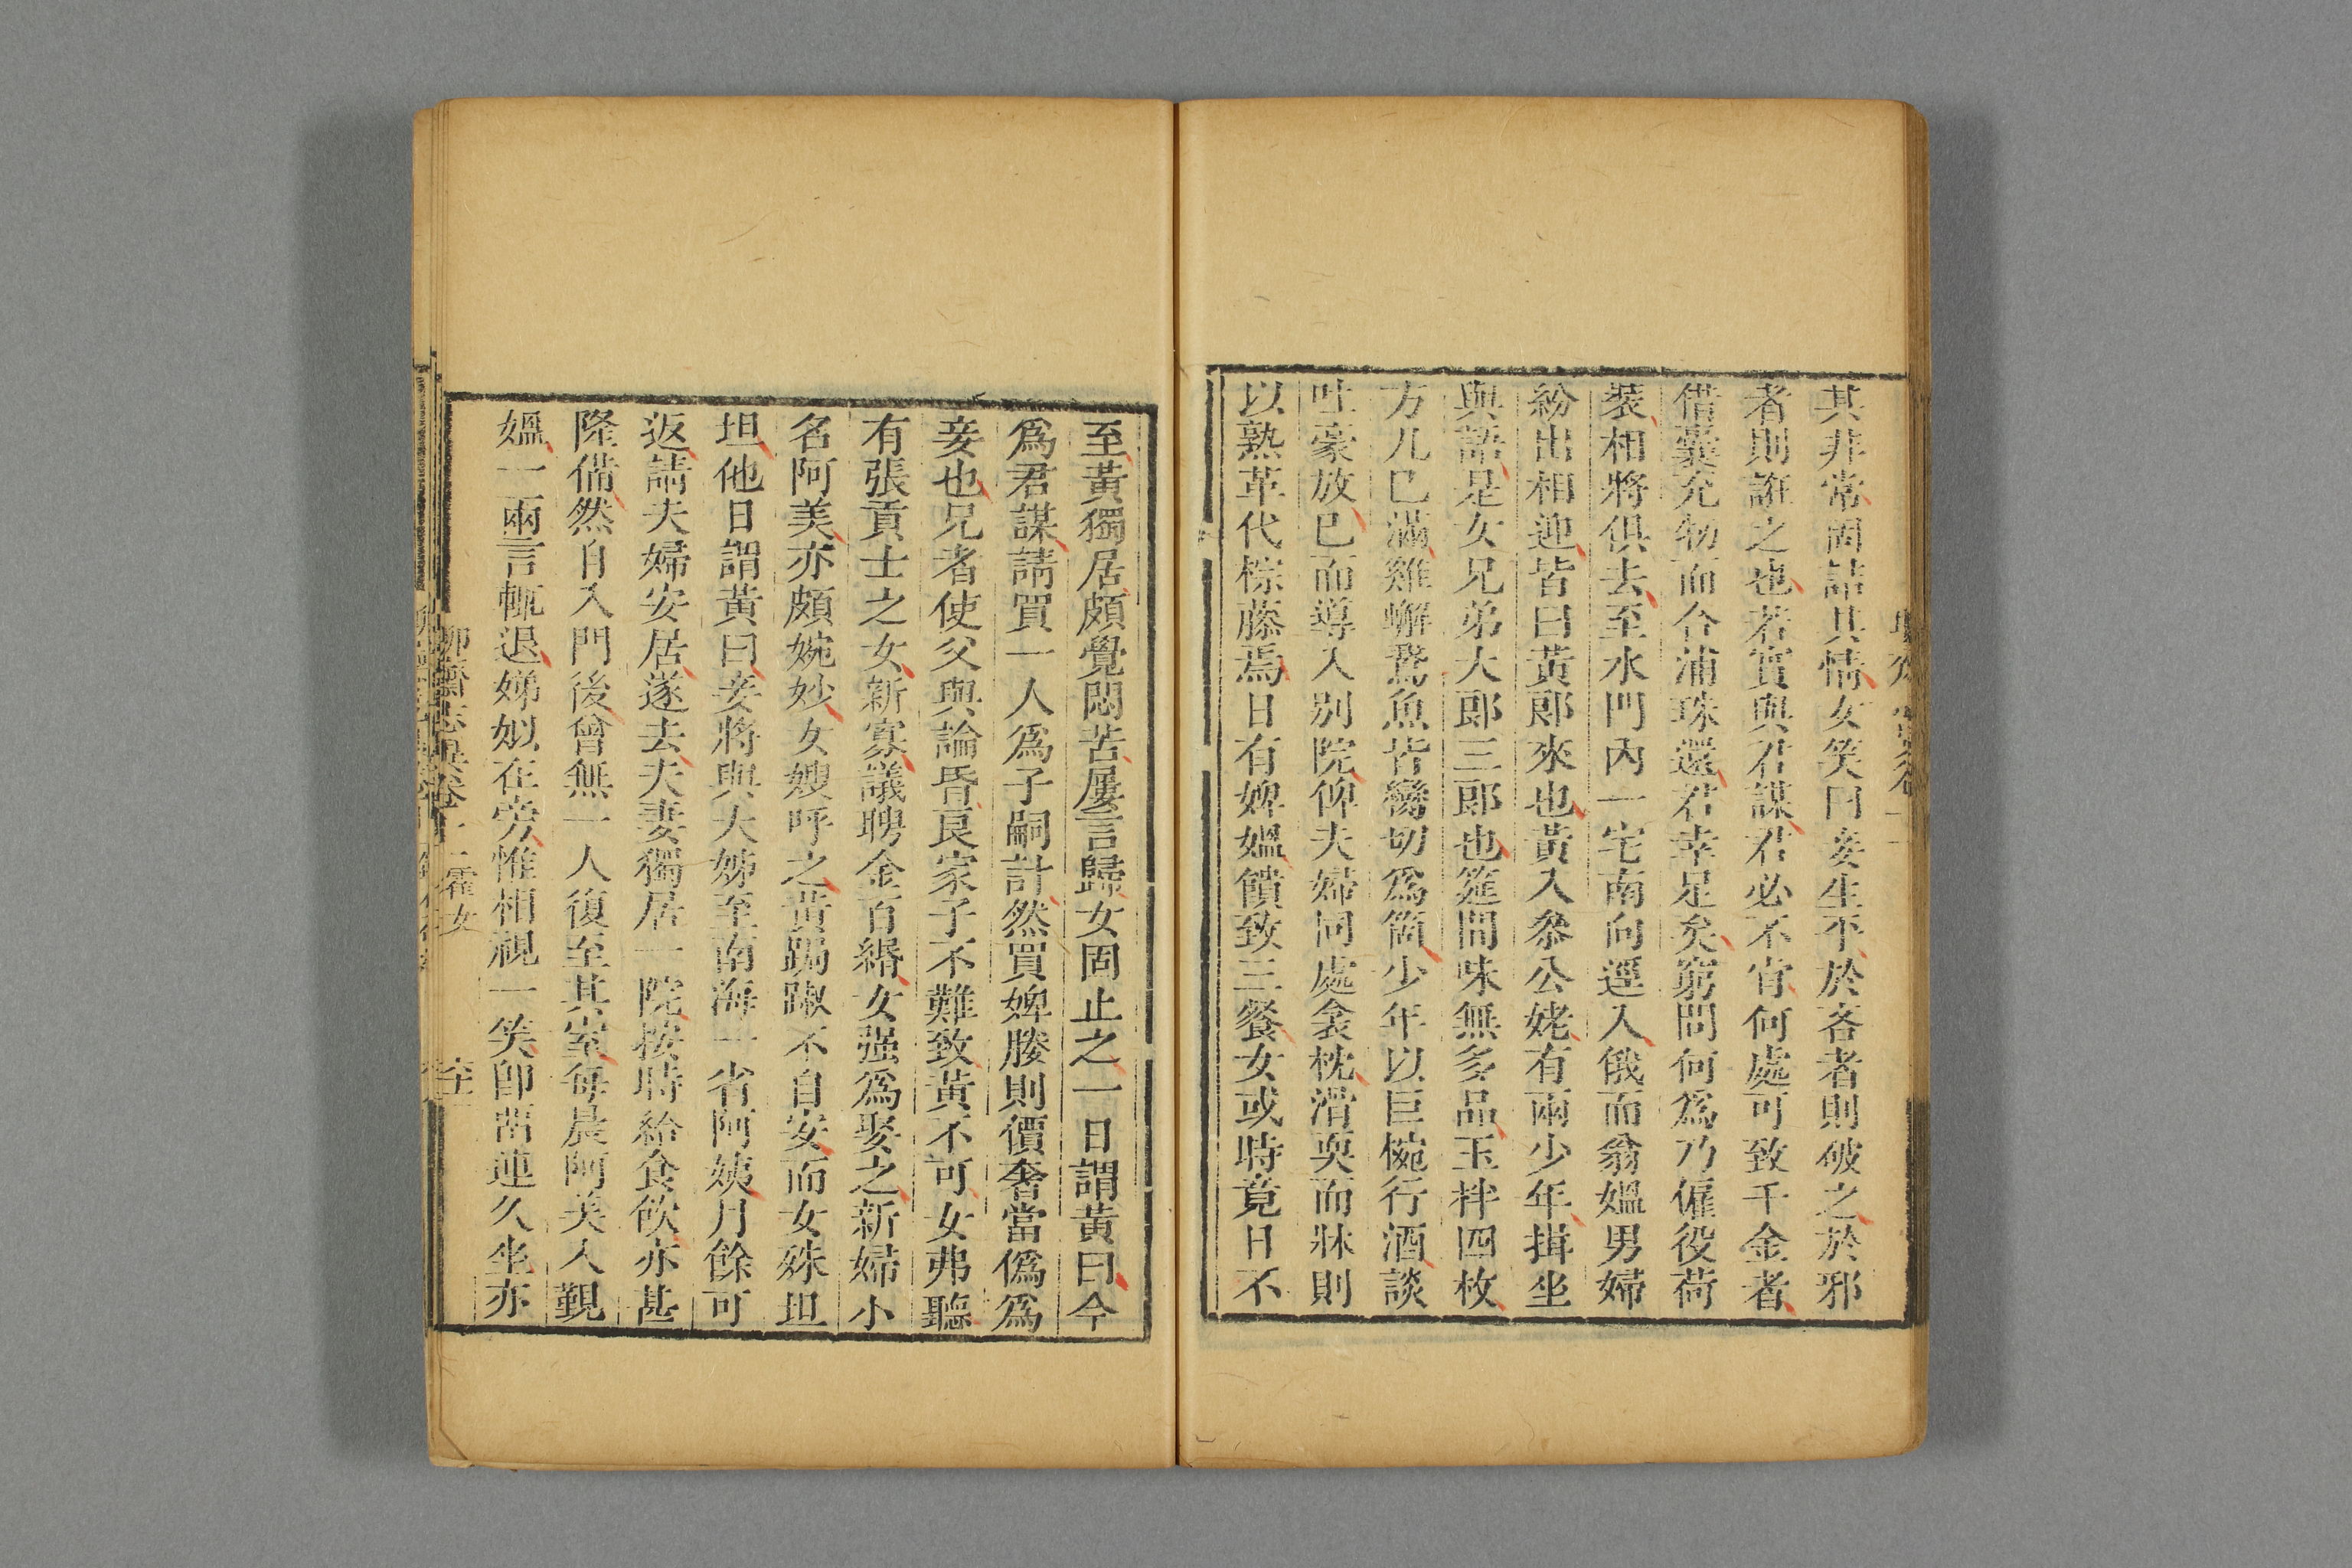 其非常固詰其情女笑曰妾生平於吝者則破之於邪
者則誑之也若實與君謀君必不肯何處可致千金者
借囊充物而合浦珠還君幸足矣窮問何爲乃僱役荷
裝相將俱去至水門內一宅南向逕入俄而翁媼男婦
紛出相迎皆曰黃郎來也黃入參公姥有兩少年揖坐
與語是女兄弟大郎三郎也筵間味無多品玉柈四枚
方几已滿雞蠏鵞魚皆臠切爲箇少年以巨椀行酒談
吐豪放已而導入別院俾夫婦同處衾枕滑耎而牀則
以熟革代棕藤焉日有婢媼饋致三餐女或時竟日不
至黃獨居頗覺悶苦屢言歸女固止之一日謂黃曰今
爲君謀請買一人爲子嗣計然買婢媵則價奢當僞爲
妾也兄者使父與論昏良家子不難致黃不可女弗聽
有張貢士之女新寡議聘金百緡女强爲娶之新婦小
名阿美亦頗婉妙女嫂呼之黃跼踧不自安而女殊坦
坦他日謂黃曰妾將與大姊至南海一省阿姨月餘可
返請夫婦安居遂去夫妻獨居一院按時給食飲亦甚
隆備然自入門後曾無一人復至其室每晨阿美入覲
媼一兩言輒退娣姒在旁惟相視一笑卽畱連久坐亦
聊齋志異卷十二 霍女